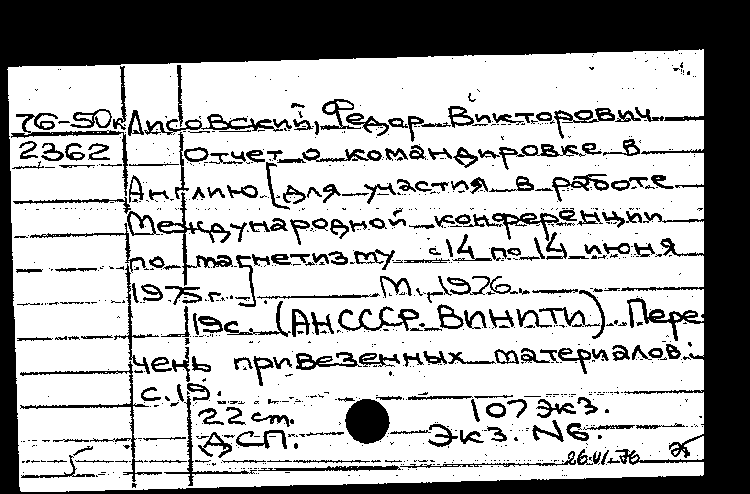 76-50к Лисовский, Федор Викторович
2362 Отчет о командировке в
Англию [для участия в работе
Международной конференции
по магнетизму с 14 по 14 июня
1975 г.] М., 1976.
19с. (АНСССР. ВИНИТИ). Пере-
чень привезенных материалов:
с.19.
22 см. 107 экз.
ДСП. Экз. N6.
26.VI.76